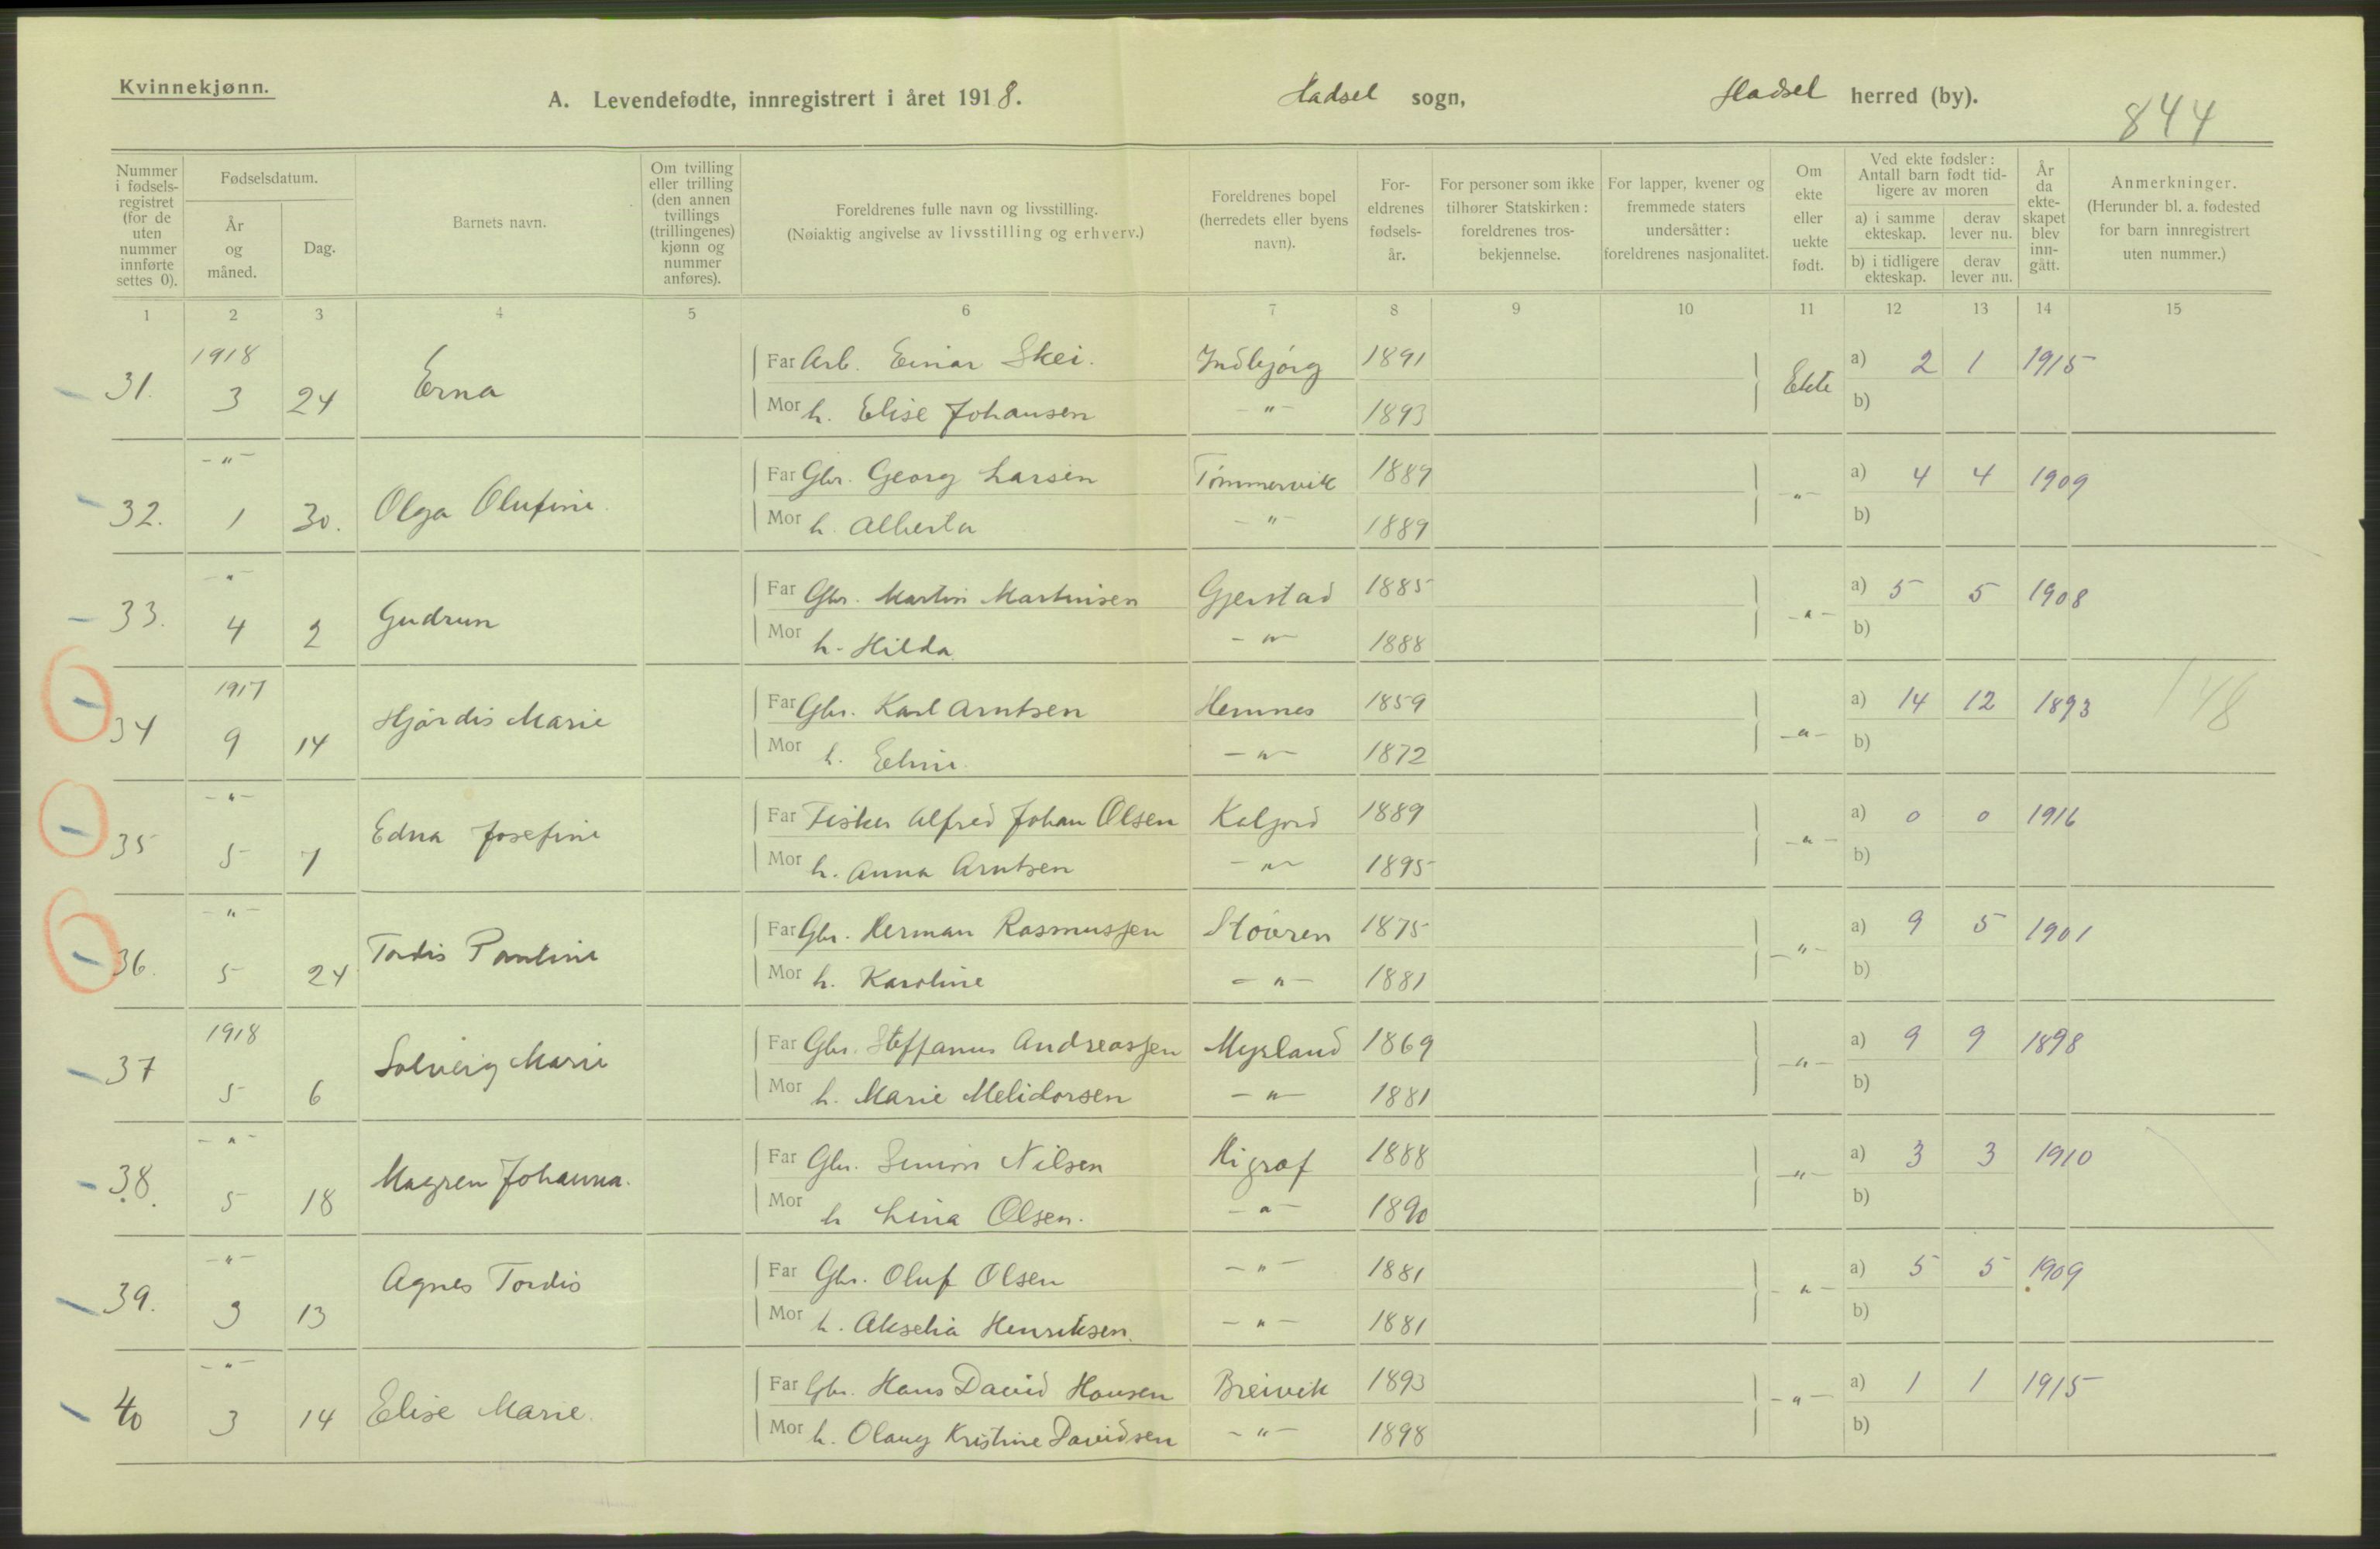 Kvinnekjønn.
A. Levendefødte, innregistrert i året 1918. Hadsel sogn, Hadsel herred (by).
844
Nummer i fødsels-registret (for de uten nummer innførte settes 0).
Fødselsdatum.
År og måned.
Dag.
Barnets navn.
Om tvilling eller trilling (den annen tvillings (trillingenes) kjønn og nummer anføres).
Foreldrenes fulle navn og livsstilling.
(Nøiaktig angivelse av livsstilling og erhverv.)
Foreldrenes bopel (herredets eller byens navn).
For-eldrenes fødsels-år.
For personer som ikke tilhører Statskirken: foreldrenes tros-bekjennelse.
For lapper, kvener og fremmede staters undersåtter: foreldrenes nasjonalitet.
Om ekte eller uekte født.
Ved ekte fødsler: Antall barn født tid-ligere av moren
a) i samme ekteskap.
derav lever nu.
b) i tidligere ekteskap.
derav lever nu.
År da ekte-skapet blev inn-gått.
Anmerkninger.
(Herunder bl. a. fødested for barn innregistrert uten nummer.)
1 2 3 4 5 6 7 8 9 10 11 12 13 14 15
1918 Far Arb. Einar Skei. Indbjørg 1891 a) 2 1 1915
31. 3 24 Erna Ekte
Mor h. Elise Johansen -"- 1893 b)
-"- Far Gbr. Georg Larsen Tømmervik 1889 a) 4 4 1909
32. 1 30. Olga Olufine. -"-
Mor h. Alberta -"- 1889 b)
-"- Far Gbr. Martin Martinsen Gjerstad 1885 a) 5 5 1908
33. 4 2 Gudrun -"-
Mor h. Hilda -"- 1888 b)
1917 Far Gbr. Karl Arntsen Hemnes 1859 a) 14 12 1893 148
34 9 14 Hjørdis Marie -"-
Mor h. Eline. -"- 1872 b)
-"- Far Fisker Alfred Johan Olsen Kaljord 1889 a) 0 0 1916
35 5 7 Edna Josefine -"-
Mor h. Anna Arntsen -"- 1895 b)
-"- Far Gbr. Herman Rasmussen 1875 a) 9 5 1901
36. 5 24 Tordis Pauline -"-
Mor h. Karoline -"- 1881 b)
1918 Far Gbr. Steffanus Andreassen Myrland 1869 a) 9 9 1898
37 5 6 Solveig Marie -"-
Mor h. Marie Melidorsen -"- 1881 b)
-"- Far Gbr. Nilsen Higraf 1888 a) 3 3 1910
38. 5 18 Magren Johanna. -"-
Mor h Lina Olsen. -"- 1890 b)
-"- Far Gbr. Oluf Olsen -"- 1881 a) 5 5 1909
39. 3 13 Agnes Tordis -"-
Mor h. Akselia Henriksen. -"- 1881 b)
-"- Far Gbr. Hans David Hansen Breivik 1893 a) 1 1 1915
40 3 14 Elise Marie. -"-
Mor h. Olaug Kristine Davidsen -"- 1898 b)